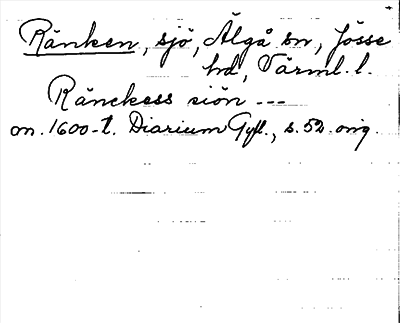 Ränken, sjö, Älgå sn, Jösse
hd, Värml. l.
Ränckess siön ---
on. 1600-t. Diarium Gyll., s. 52. orig.